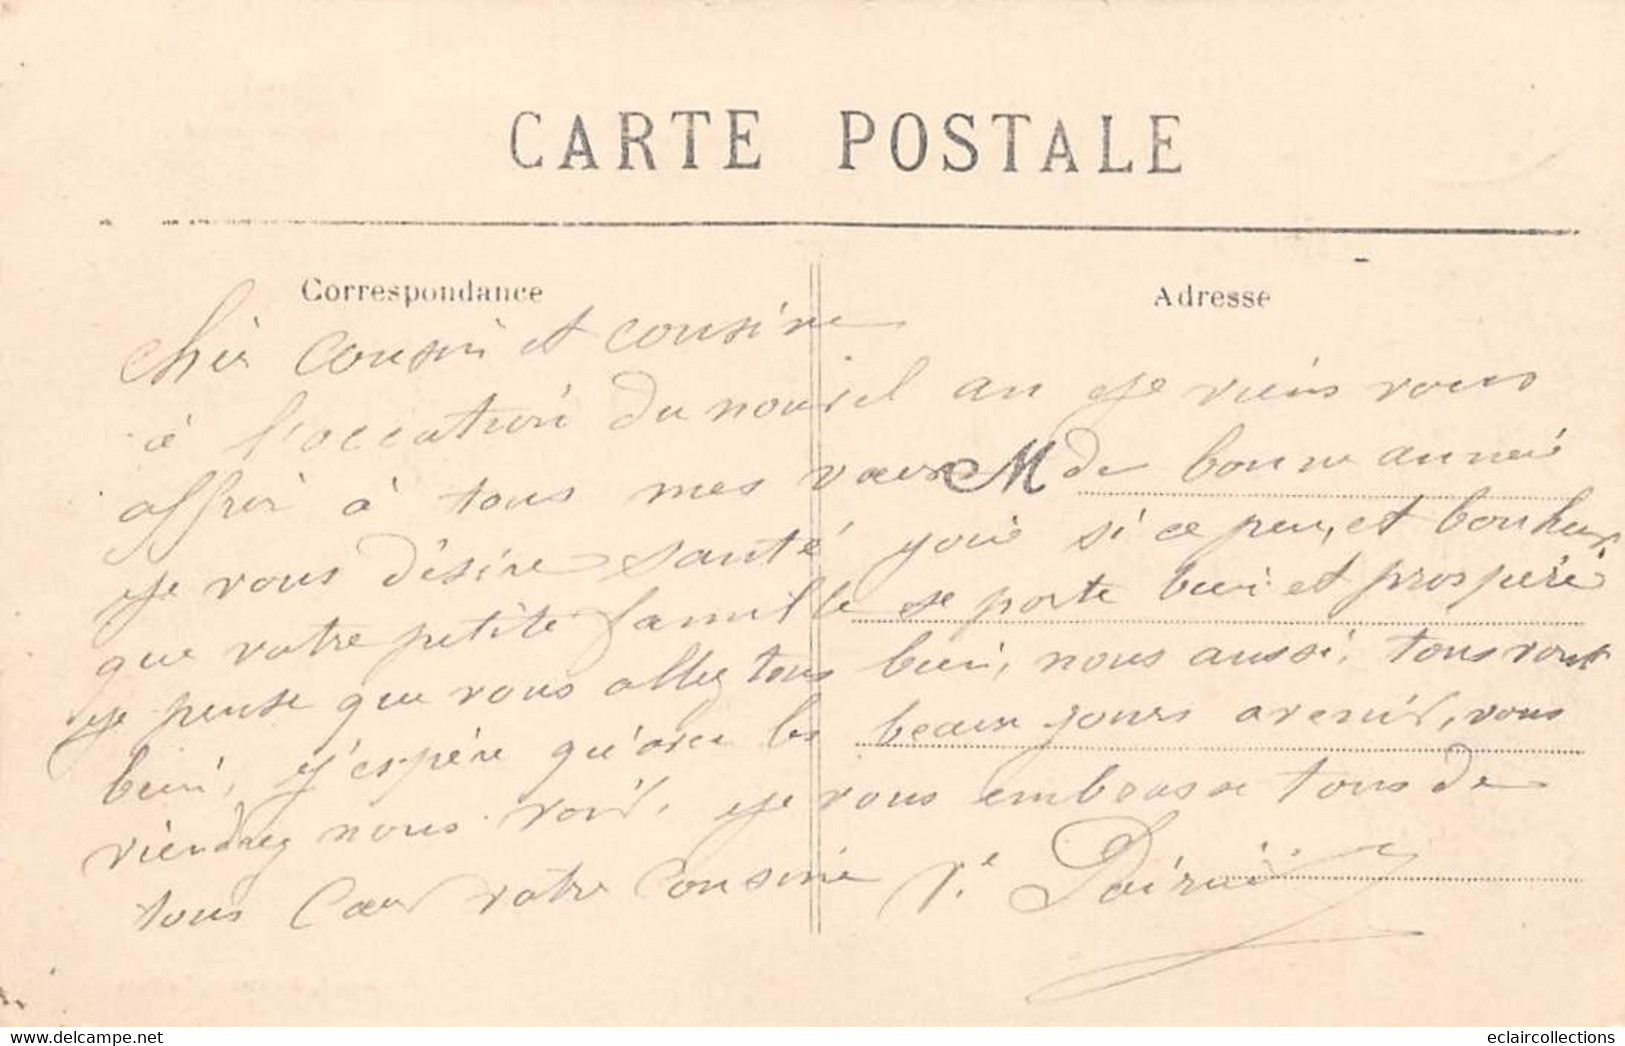 CARTE POSTALE
Correspondance
Adresse
cher cousin et cousine
à l'occation du nouvel an je viens vous
offrir à tous mes vœux M de bonne année
je vous désire santé joie si ce peu, et bonheur
que votre petite famille se porte bien et prospère
je pense que vous allez tous bien, nous aussi, tous vont
bien, j'espère qu'avec les beaux jours avenir, vous
viendrez nous voir, je vous embrasse tous de
tous cœur votre cousine V.e
eclaircollections delcampe.net